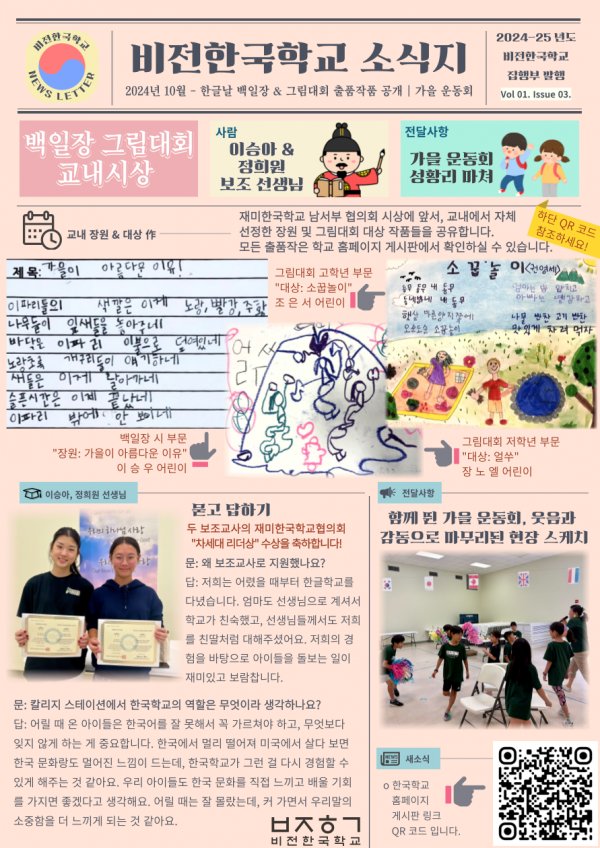 비전한국학교
NEWS LETTER
비전한국학교 소식지
2024년 10월 - 한글날 백일장 & 그림대회 출품작품 공개 | 가을 운동회
2024-25 년도
비전한국학교
집행부 발행
Vol 01. Issue 03.
백일장 그림대회
교내시상
사람
이승아 &
정희원
보조 선생님
전달사항
가을 운동회
성황리 마쳐
하단 QR 코드
참조하세요!
교내 장원 & 대상 作
재미한국학교 남서부 협의회 시상에 앞서, 교내에서 자체
선정한 장원 및 그림대회 대상 작품들을 공유합니다.
모든 출품작은 학교 홈페이지 게시판에서 확인하실 수 있습니다.
제목: 가을이 아름다운 이유!
이파리들의 색깔은 이제 노랑, 빨강, 주황
나무들이 잎새들을 놓아주네
바닥은 이파리 이불로 덮여있네
노랑초록 개구리들이 얘기하네
새들은 이제 날아가네
슬픈시간은 이제 끝났네
이파리 밖에 안 보이네
그림대회 고학년 부문
"대상: 소꿉놀이"
조 은 서 어린이
소꿉놀이 (권영세)
햇살 따뜻한
백일장 시 부문
"장원: 가을이 아름다운 이유"
이 승 우 어린이
그림대회 저학년 부문
"대상: 얼쑤"
장 노 엘 어린이
이승아, 정희원 선생님
묻고 답하기
두 보조교사의 재미한국학교협의회
"차세대 리더상" 수상을 축하합니다!
문: 왜 보조교사로 지원했나요?
답: 저희는 어렸을 때부터 한글학교를
다녔습니다. 엄마도 선생님으로 계셔서
학교가 친숙했고, 선생님들께서도 저희
를 친딸처럼 대해주셨어요. 저희의 경
험을 바탕으로 아이들을 돌보는 일이
재미있고 보람찹니다.
문: 칼리지 스테이션에서 한국학교의 역할은 무엇이라 생각하나요?
답: 어릴 때 온 아이들은 한국어를 잘 못해서 꼭 가르쳐야 하고, 무엇보다
잊지 않게 하는 게 중요합니다. 한국에서 멀리 떨어져 미국에서 살다 보면
한국 문화랑도 멀어진 느낌이 드는데, 한국학교가 그런 걸 다시 경험할 수
있게 해주는 것 같아요. 우리 아이들도 한국 문화를 직접 느끼고 배울 기회
를 가지면 좋겠다고 생각해요. 어릴 때는 잘 몰랐는데, 커 가면서 우리말의
소중함을 더 느끼게 되는 것 같아요.
ㅂㅈㅎㄱ
비전한국학교
전달사항
함께 뛴 가을 운동회, 웃음과
감동으로 마무리된 현장 스케치
NEWS
새소식
o 한국학교
홈페이지
게시판 링크
QR 코드 입니다.